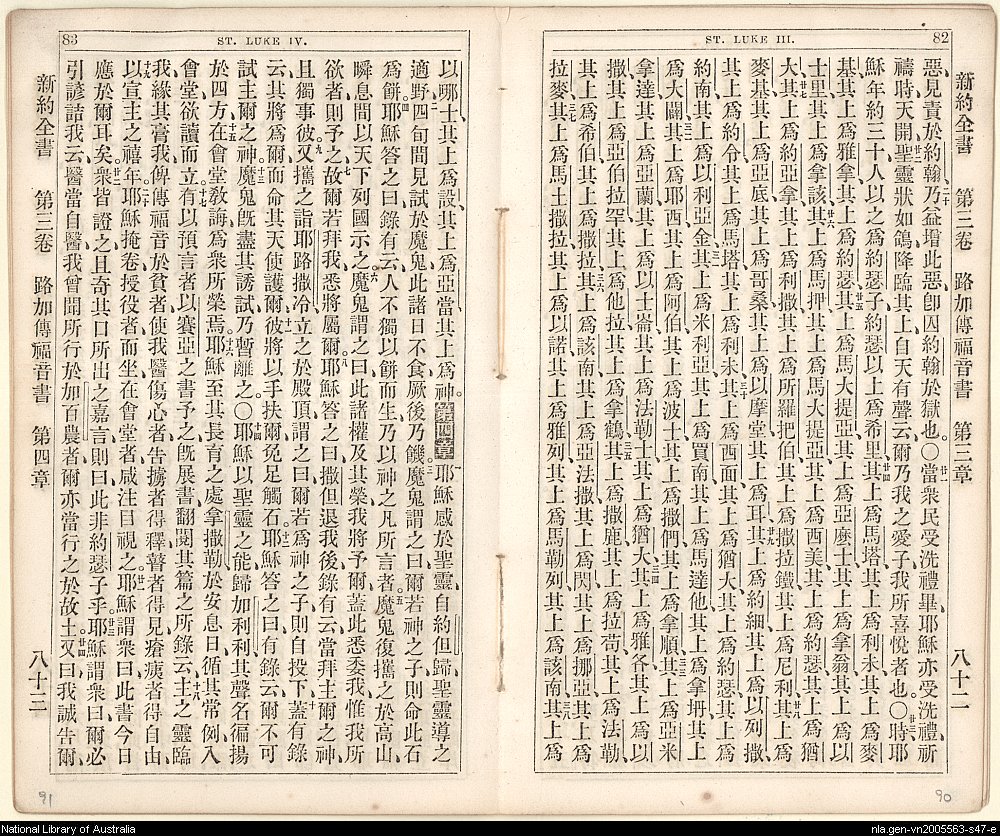 82
ST. LUKE III.
新約全書 第三卷 路加傳福音書 第三章 八十二
惡、見責於約翰、乃益增此惡、卽囚約翰於獄也。〇當衆民受洗禮畢、耶穌亦受洗禮、祈
禱時、天開、聖靈狀如鴿、降臨其上、自天有聲云、爾乃我之愛子、我所喜悅者也。〇時耶
穌年約三十、人以之爲約瑟子、約瑟以上爲希里、其上爲馬塔、其上爲利未、其上爲麥
基、其上爲雅拿、其上爲約瑟、其上爲馬大提亞、其上爲亞麽士、其上爲拿翁、其上爲以
士里、其上爲拿該、其上爲馬押、其上爲馬大提亞、其上爲西美、其上爲約瑟、其上爲猶
大、其上爲約亞拿、其上爲利撒、其上爲所羅把伯、其上爲撒拉鐵、其上爲尼利、其上爲
麥基、其上爲亞底、其上爲哥桑、其上爲以摩堂、其上爲耳、其上爲約細、其上爲以列撒、
其上爲約令、其上爲馬塔、其上爲利未、其上爲西面、其上爲猶大、其上爲約瑟、其上爲
約南、其上爲以利亞金、其上爲米利亞、其上爲買南、其上爲馬達他、其上爲拿坍、其上
爲大闢、其上爲耶西、其上爲阿伯、其上爲波士、其上爲撒們、其上爲拿順、其上爲亞米
拿達、其上爲亞蘭、其上爲以士崙、其上爲法勒士、其上爲猶大、其上爲雅各、其上爲以
撒、其上爲亞伯拉罕、其上爲他拉、其上爲拿鶴、其上爲撒鹿、其上爲拉茍、其上爲法勒、
其上爲希伯、其上爲撒拉、其上爲該南、其上爲亞法撒、其上爲閃、其上爲挪亞、其上爲
拉麥、其上爲馬土撒拉、其上爲以諾、其上爲雅列、其上爲馬勒列、其上爲該南、其上爲
90
83
ST. LUKE IV.
以哪士、其上爲設、其上爲亞當、其上爲神。第四章耶穌感於聖靈、自約但歸、聖靈導之
適野、四旬間見試於魔鬼、此諸日不食、厥後乃饑。魔鬼謂之曰、爾若神之子、則命此石
爲餅、耶穌答之曰、錄有云、人不獨以餅而生、乃以神之凡所言者。魔鬼復攜之於高山、
瞬息間、以天下列國示之。魔鬼謂之曰、此諸權及其榮、我將予爾、蓋此悉委我、惟我所
欲者則予之、故爾若拜我、悉將屬爾。耶穌答之曰、撒但退我後、錄有云、當拜主爾之神、
且獨事彼。又攜之詣耶路撒冷、立之於殿頂、謂之曰、爾若爲神之子、則自投下、蓋有錄
云、其將爲爾而命其天使護爾、彼將以手扶爾、免足觸石。耶穌答之曰、有錄云、爾不可
試主爾之神。魔鬼旣盡其誘試、乃暫離之。〇耶穌以聖靈之能、歸加利利、其聲名徧揚
於四方、在會堂教誨、爲衆所榮焉。耶穌至其長育之處、拿撒勒、於安息日循其常例、入
會堂、欲讀而立。有以預言者以賽亞之書予之、旣展書、翻閱其篇之所錄云、主之靈臨
我、緣其膏我、俾傳福音於貧者、使我醫傷心者、告擄者得釋、瞽者得見、瘡痍者得自由、
以宣主之禧年。耶穌掩卷、授役者而坐、在會堂者、咸注目視之。耶穌謂衆曰、此書今日
應於爾耳矣。衆皆證之、且奇其口所出之嘉言、則曰、此非約瑟子乎。耶穌謂衆曰、爾必
引諺詰我云、醫當自醫、我曾聞所行於加百農者、爾亦當行之於故土。又曰、我誠告爾、
新約全書 第三卷 路加傳福音書 第四章 八十三
91
National Library of Australia
nla.gen-vn2005563-s47-e